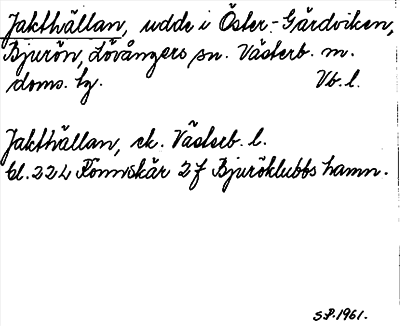 Jakthällan, udde i Öster-Gärdviken,
Bjurön, Lövångers sn. Västerb. m.
doms. hg. Vb. l.
Jakthällan, ek. Västerb. l.
bl. 22 L Rönnskär 2 f Bjuröklubbs hamn.
S.P. 1961.